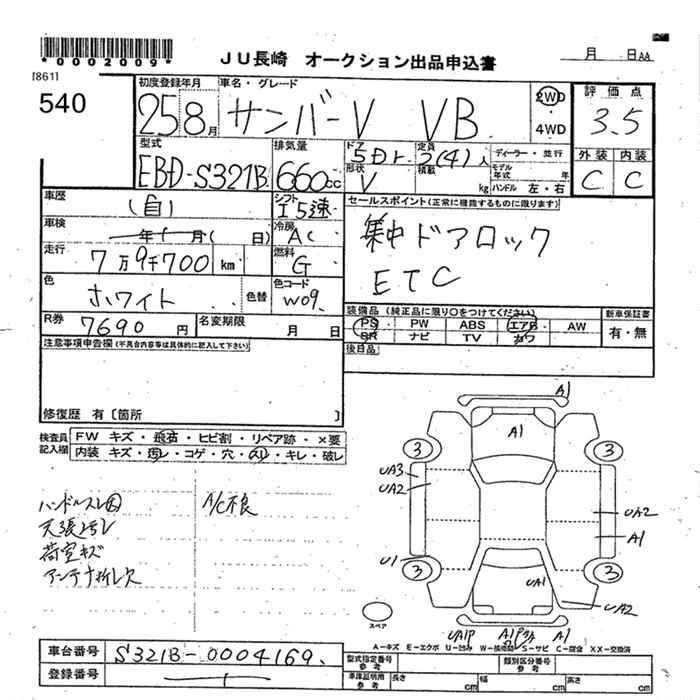 *0002009*
JU長崎 オークション出品申込書
月 日AA
[861]
540
初度登録年月
25 8月
車名・グレード
サンバーV VB
2WD
・
4WD
評価点
3.5
型式
EBD-S321B
排気量
660cc
ドア
5Dr.
定員
2(4)人
ディーラー・並行
形状
V
積載
kg
モデル年式 年
ハンドル 左・右
外装 内装
C C
車歴
(自)
シフト
I 5速
セールスポイント(正常に機能するものに限ります)
集中ドアロック
ETC
車検
年 月( 日)
冷房
AC
走行
7万9千700 km
燃料
G
色
ホワイト
色替
色コード
W09
装備品(純正品に限り○をつけてください)
新車保証書
PS PW ABS エアB AW
有・無
SR ナビ TV カワ
R券
7690円
名変期限
月 日
後日品
注意事項申告欄(不具合内容等は具体的に記入して下さい)
修復歴 有〔箇所 〕
検査員記入欄
FW キズ・飛石・ヒビ割・リペア跡・×要
内装 キズ・汚レ・コゲ・穴・スレ・キレ・破レ
ハンドルスレ大
A/C不良
天張汚レ
荷室キズ
アンテナ折レ欠
A1
A1
3 3
UA3
UA2
UA2
A1
U1
3 3
UA1
UA2
スペア
UA1P A1P A1
A-キズ E-エクボ U-凹み W-補修跡 S-サビ C-腐食 XX-交換済
車台番号
S321B-0004169
登録番号
型式指定番号
参考
類別区分番号
参考
車庫証明用
参考
長さ cm
幅 cm
高さ cm